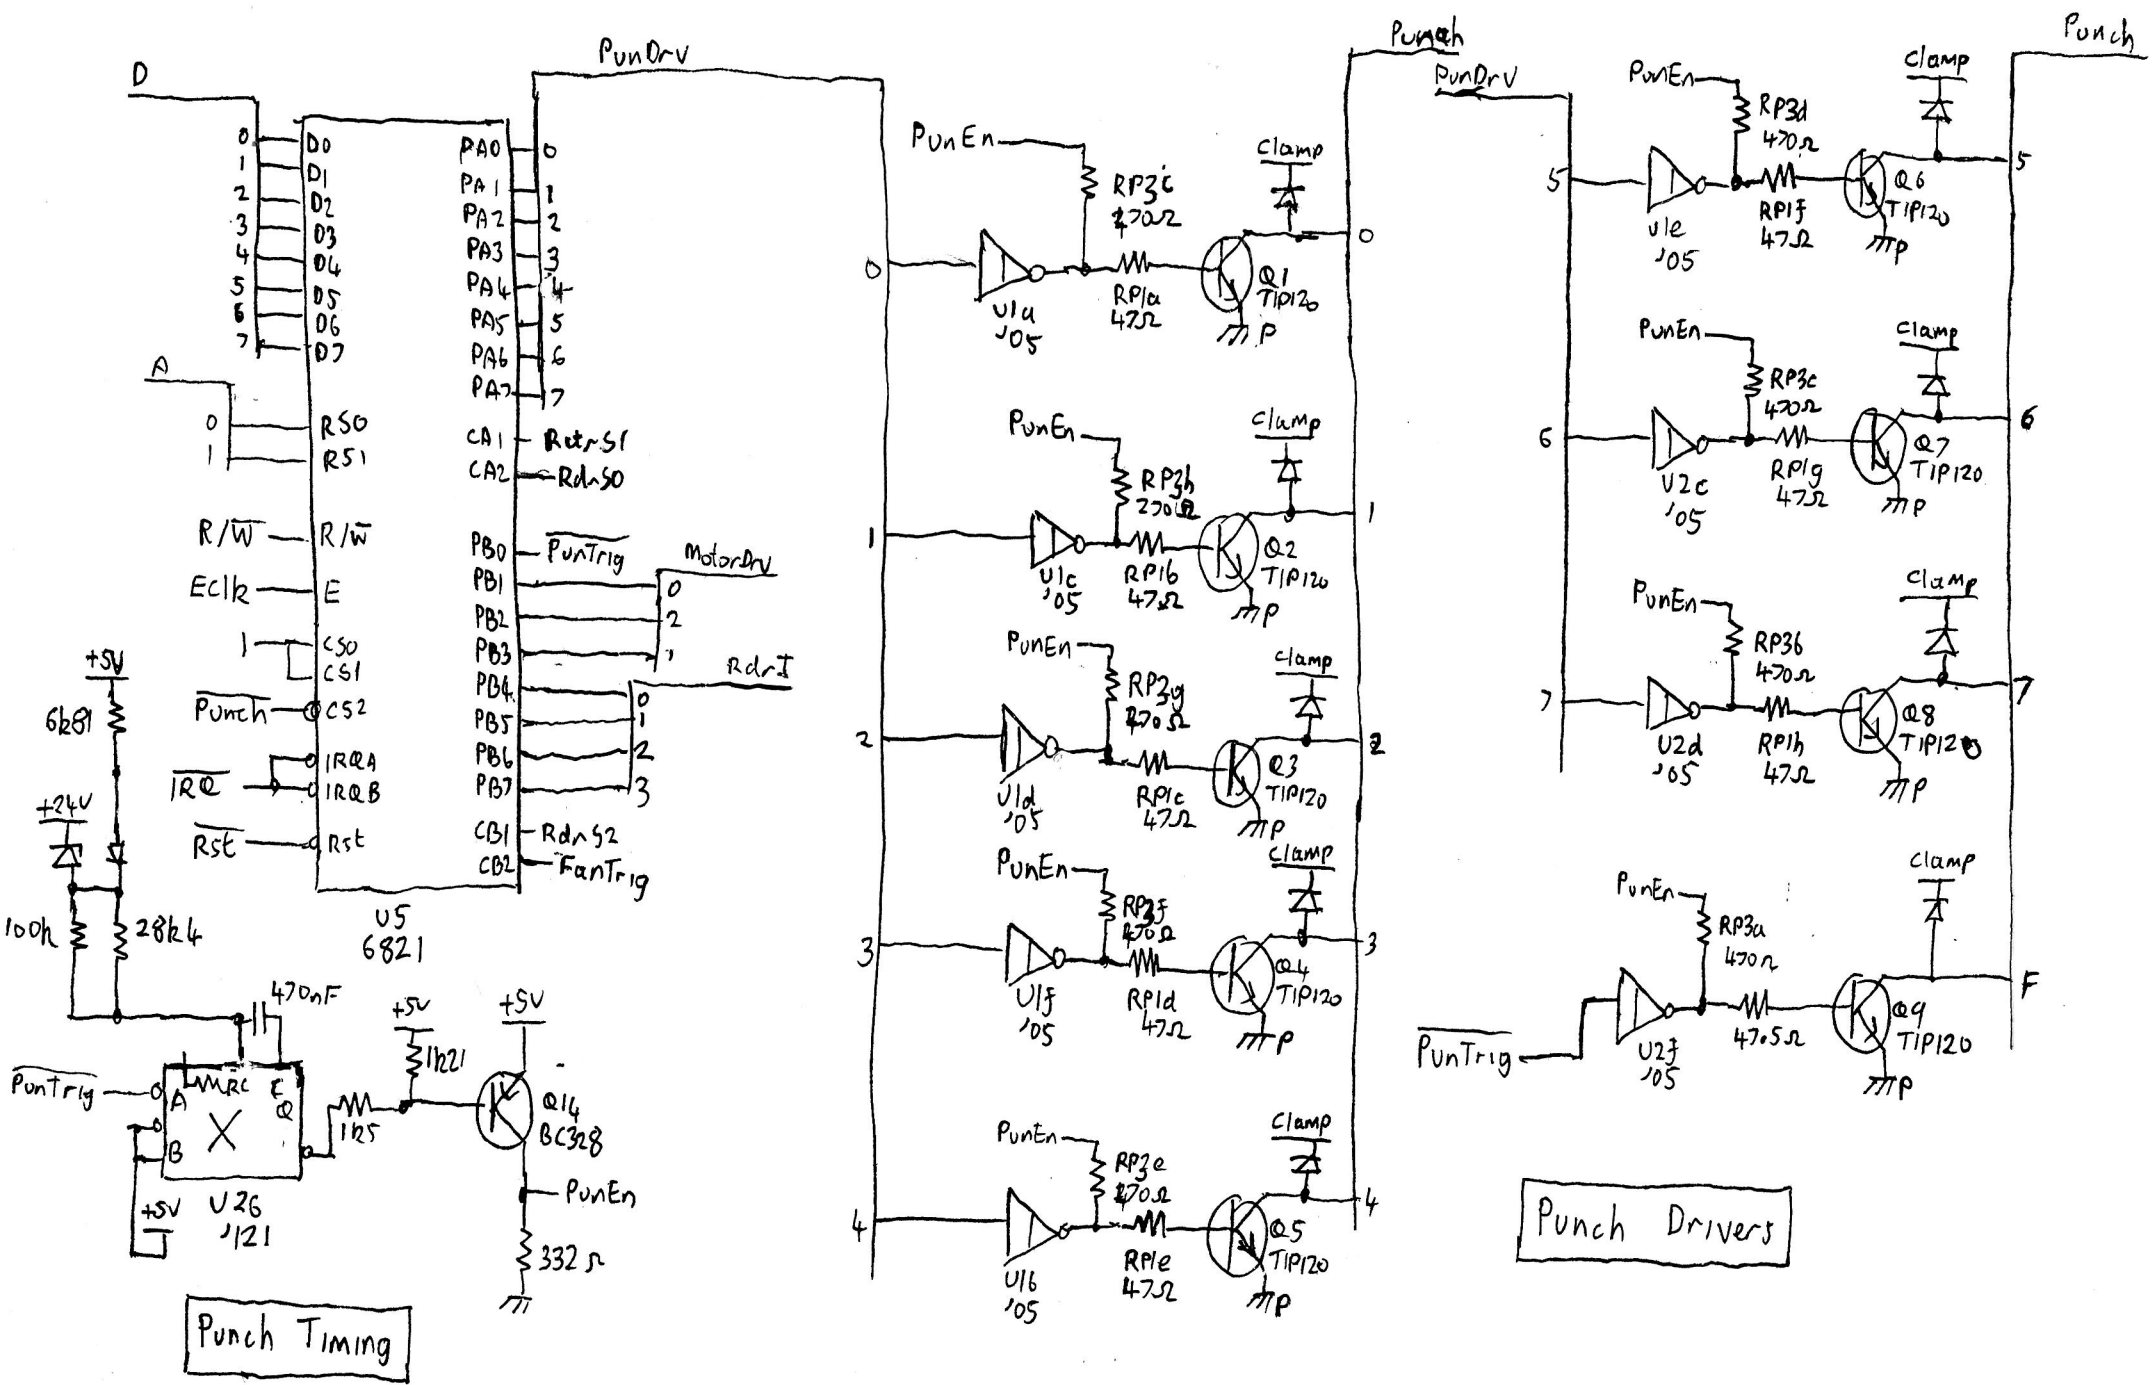 D
0 D0
1 D1
2 D2
3 D3
4 D4
5 D5
6 D6
7 D7
A
0 RS0
1 RS1
R/W̅ R/W̅
Eclk E
1 CS0
CS1
P̅u̅n̅c̅h̅ CS2
I̅R̅Q̅ IRQA
IRQB
R̅s̅t̅ Rst
U5
6821
PunDrv
PA0 0
PA1 1
PA2 2
PA3 3
PA4 4
PA5 5
PA6 6
PA7 7
CA1
CA2 RdrS0
PB0 P̅u̅n̅T̅r̅i̅g̅
MotorDrv
PB1 0
PB2 2
PB3 1
RdrI
PB4 0
PB5 1
PB6 2
PB7 3
CB1 RdrS2
CB2 FanTrig
+5V
6k81
+24V
100k
28k4
470nF
P̅u̅n̅T̅r̅i̅g̅
A
B
RC
E
Q
X
U26
'121
+5V
+5V
1k21
1k5
+5V
Q14
BC328
PunEn
332Ω
Punch Timing
Punch
PunEn
RP3i
470Ω
Clamp
0
U1a
'05
RP1a
47Ω
Q1
TIP120
P
0
PunEn
RP3h
Clamp
1
U1c
'05
RP1b
47Ω
Q2
TIP120
P
1
PunEn
RP3g
470Ω
Clamp
2
U1d
'05
RP1c
47Ω
Q3
TIP120
P
2
PunEn
RP3f
470Ω
Clamp
3
U1f
'05
RP1d
47Ω
Q4
TIP120
P
3
PunEn
RP3e
470Ω
Clamp
4
U1b
'05
RP1e
47Ω
Q5
TIP120
P
4
PunDrv
Punch
PunEn
RP3d
470Ω
Clamp
5
U1e
'05
RP1f
47Ω
Q6
TIP120
P
5
PunEn
RP3c
470Ω
Clamp
6
U2c
'05
RP1g
47Ω
Q7
TIP120
P
6
PunEn
RP3b
470Ω
Clamp
7
U2d
'05
RP1h
47Ω
Q8
TIP120
P
7
PunEn
RP3a
470Ω
Clamp
P̅u̅n̅T̅r̅i̅g̅
U2f
'05
47.5Ω
Q9
TIP120
P
F
Punch Drivers